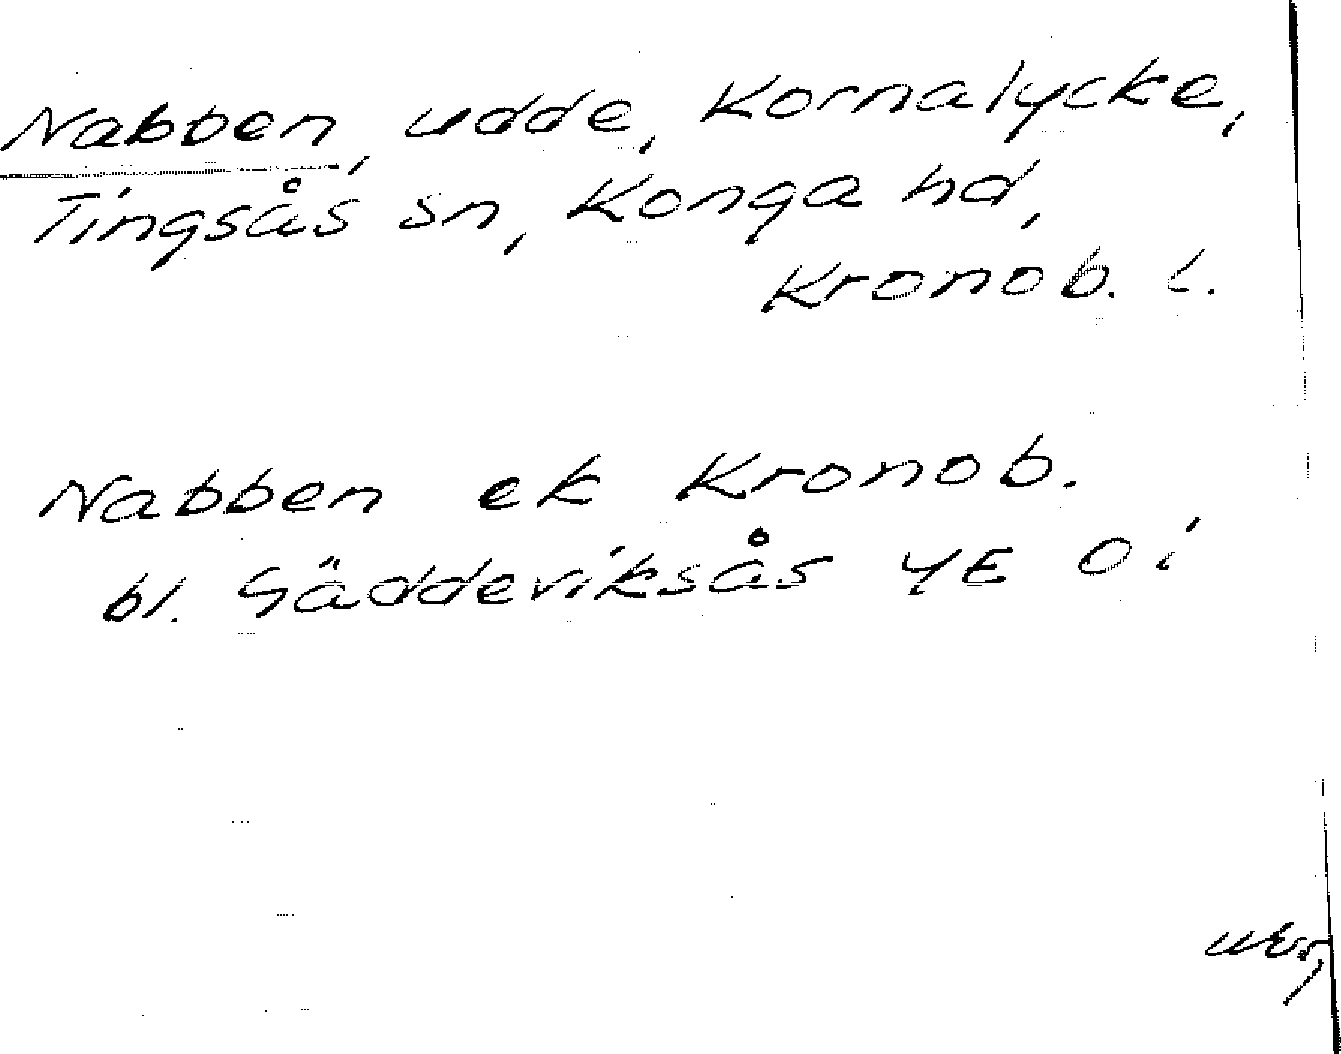 Nabben, udde, Kornalycke,
Tingsås sn, Konga hd,
Kronob. l.
Nabben ek Kronob.
bl. Gäddeviksås 4E 0i